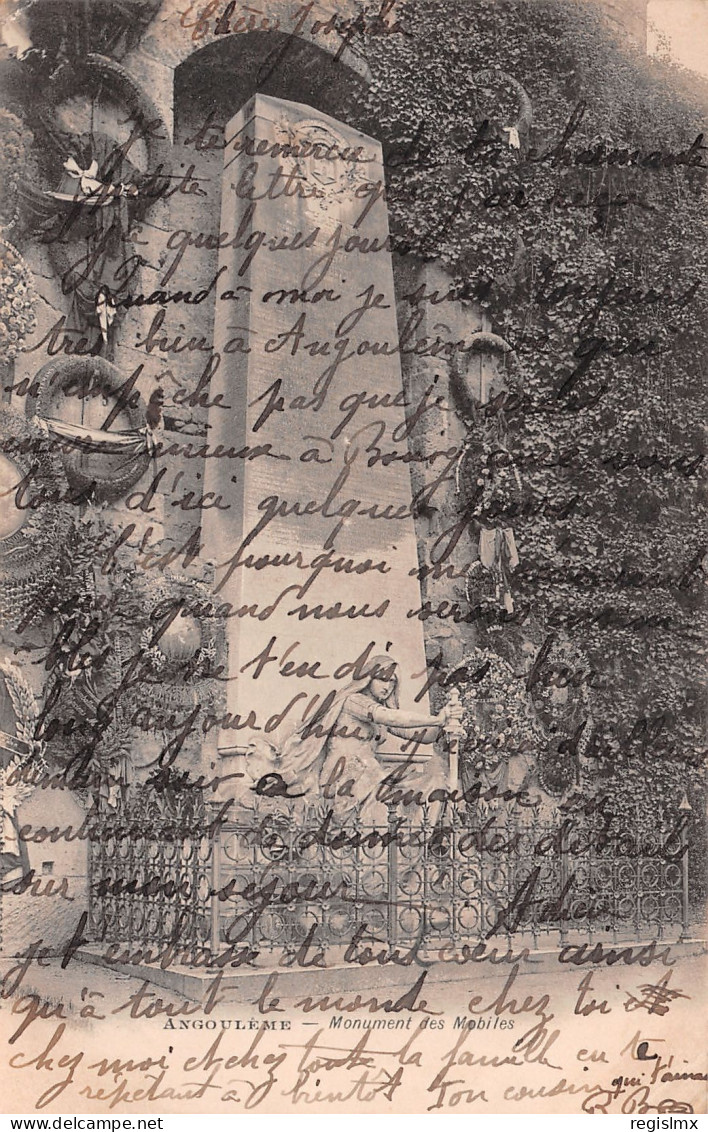 Chère Josepha
Je te remercie de ta charmante
petite lettre que j'ai reçu
il y a quelques jours
Quand à moi je suis toujours
très bien à Angoulême ce qui
n'empêche pas que je serai
mieux à Bourg avec nous
tous d'ici quelques jours
C'est pourquoi me
quand nous serons ensem
bles je t'en dis pas bien
long aujourd'hui
soir à la maison en
continuant de donner des détails
sur mon séjour Adieu
je t'embrasse de tout cœur ainsi
qu'à tout le monde chez toi
ANGOULÊME — Monument des Mobiles
chez moi et chez toute la famille en te
répétant à bientôt Ton cousin qui t'aime
R B
regislmx
www.delcampe.net